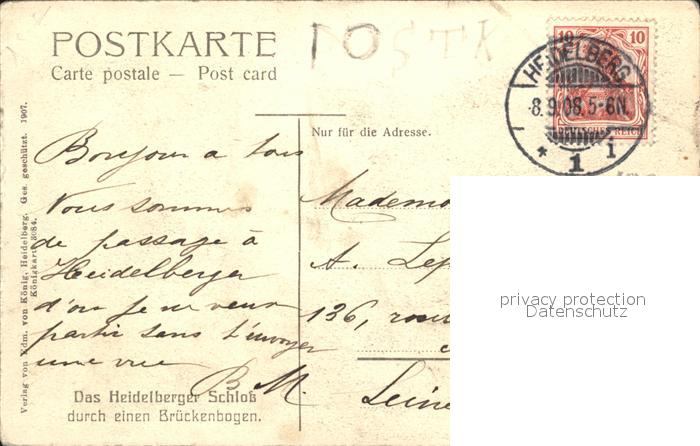 POSTKARTE
Carte postale — Post card
POSTK
10 10
HEIDELBERG
8.9.08.5-6N.
* 1 i
DEUTSCHES REICH
Nur für die Adresse.
Verlag von Edm. von König, Heidelberg. Ges. geschützt. 1907.
Königkarte 3084.
Bonjour a tous
Vous sommes
de passage à
Heidelberger
d'ou je ne veux
partir sans t'envoyer
une vue
B M.
Mademo
A. Lep
136, rou
Seine
Das Heidelberger Schloß
durch einen Brückenbogen.
privacy protection
Datenschutz